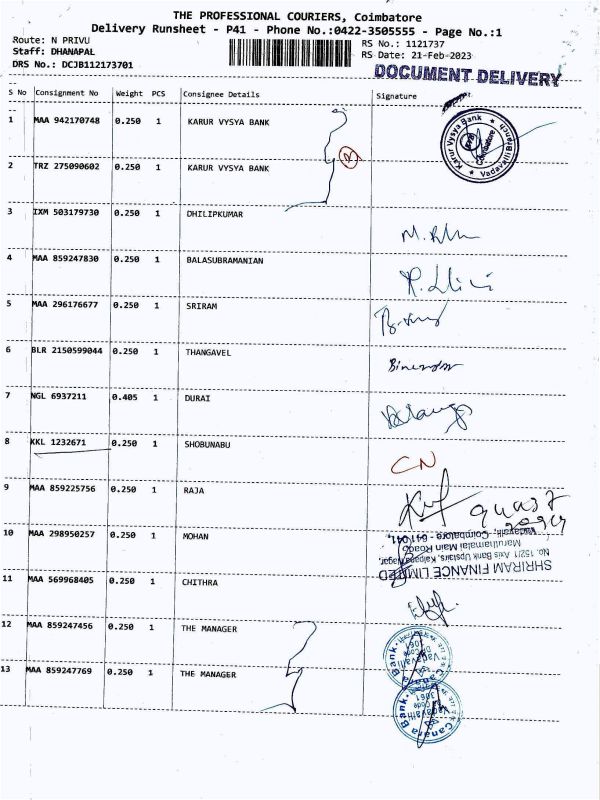 THE PROFESSIONAL COURIERS, Coimbatore
Delivery Runsheet - P41 - Phone No.:0422-3505555 - Page No.:1
Route: N PRIVU
Staff: DHANAPAL
DRS No.: DCJB112173701
RS No.: 1121737
RS Date: 21-Feb-2023
DOCUMENT DELIVERY
S No Consignment No Weight PCS Consignee Details Signature
1 MAA 942170748 0.250 1 KARUR VYSYA BANK
Karur Vysya Bank
Coimbatore
Vadavalli Branch
2 TRZ 275090602 0.250 1 KARUR VYSYA BANK
3 IXM 503179730 0.250 1 DHILIPKUMAR
4 MAA 859247830 0.250 1 BALASUBRAMANIAN
5 MAA 296176677 0.250 1 SRIRAM
6 BLR 2150599044 0.250 1 THANGAVEL
7 NGL 6937211 0.405 1 DURAI
8 KKL 1232671 0.250 1 SHOBUNABU
CN
9 MAA 859225756 0.250 1 RAJA
10 MAA 298950257 0.250 1 MOHAN
SHRIRAM FINANCE LIMITED
No. 152/1 Axis Bank Upstairs, Kalpana Nagar,
Maruthamalai Main Road,
Vadavalli, Coimbatore - 641 041.
11 MAA 569968405 0.250 1 CHITHRA
12 MAA 859247456 0.250 1 THE MANAGER
13 MAA 859247769 0.250 1 THE MANAGER
Canara Bank
Vadavalli